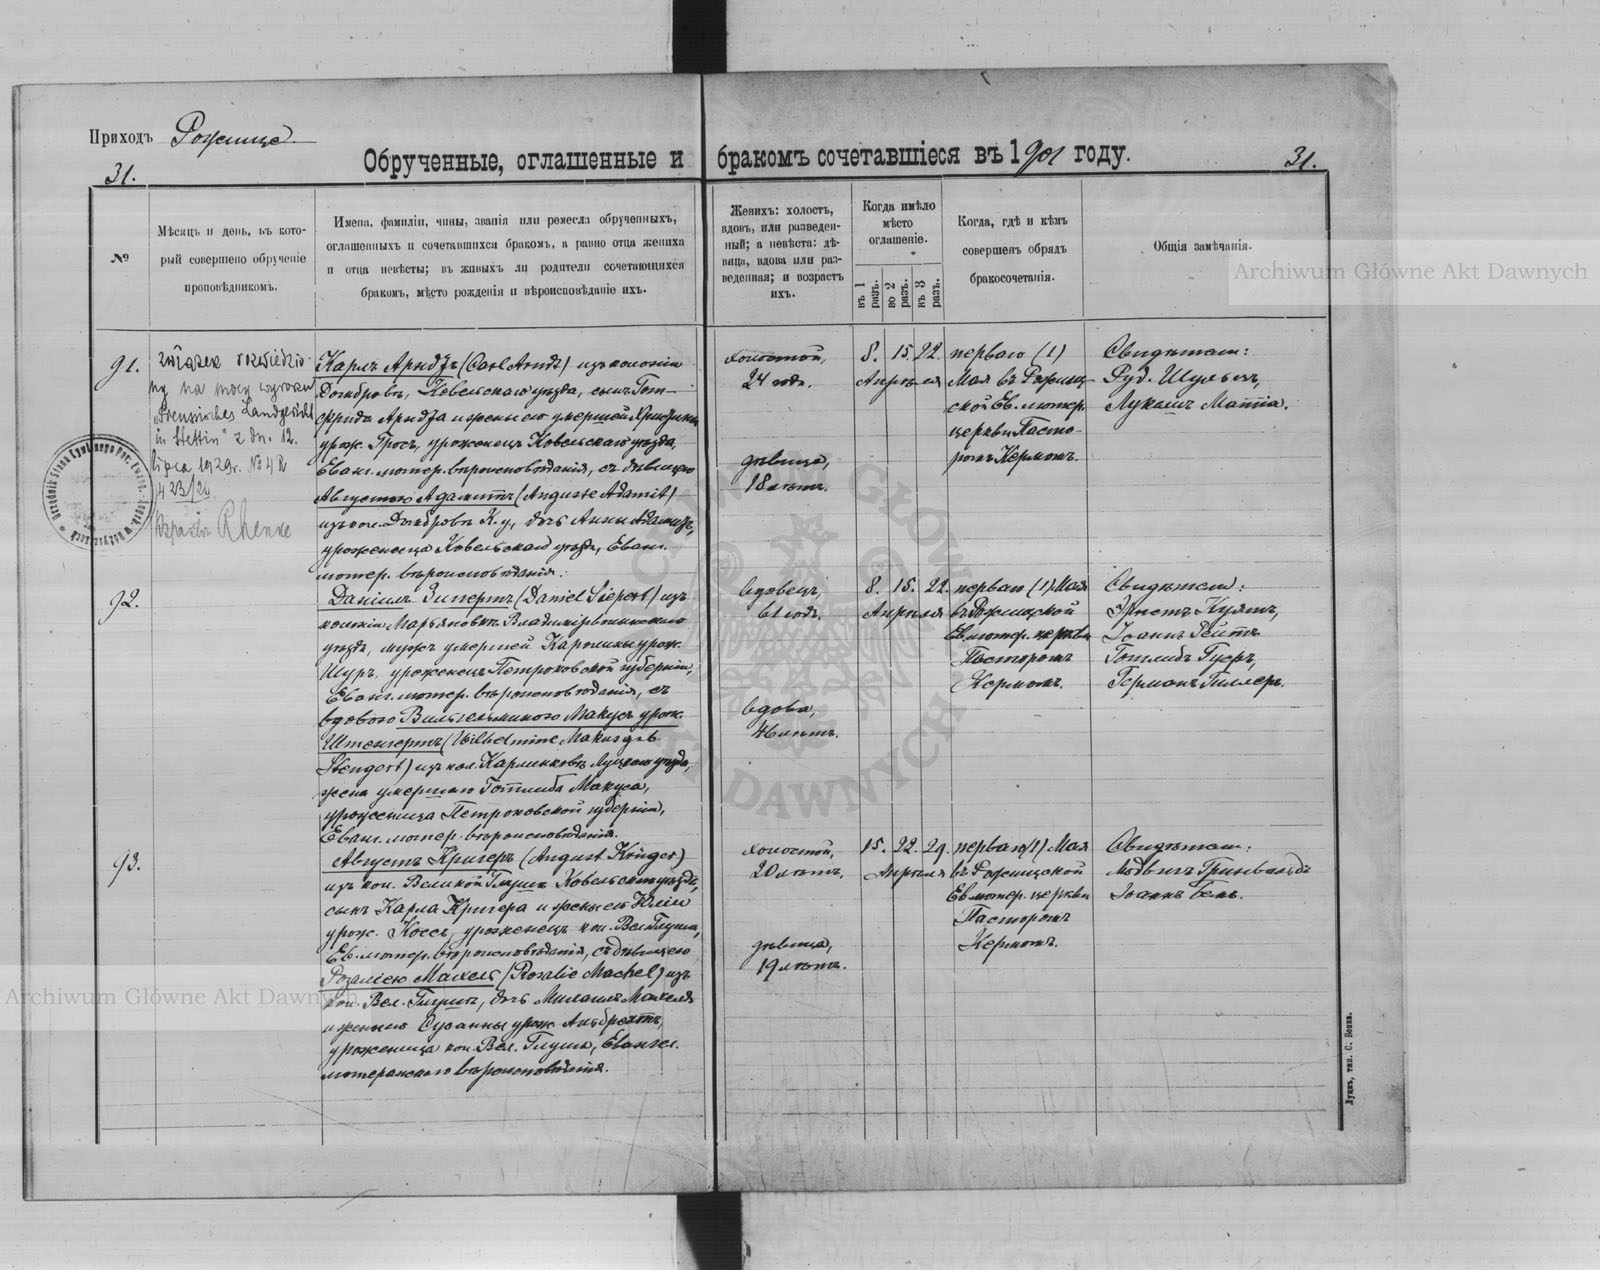 Приходъ Рожище.
31.
Обрученные, оглашенные и бракомъ сочетавшіеся въ 1901 году.
31.
№
Мѣсяцъ и день, въ кото-
рый совершено обрученіе
проповѣдникомъ.
Имена, фамиліи, чины, званія или ремесла обрученныхъ,
оглашенныхъ и сочетавшихся бракомъ, а равно отца жениха
и отца невѣсты; въ живыхъ ли родители сочетающихся
бракомъ, мѣсто рожденія и вѣроисповѣданіе ихъ.
Женихъ: холостъ,
вдовъ, или разведен-
ный; а невѣста: дѣ-
вица, вдова или раз-
веденная; и возрастъ
ихъ.
Когда имѣло
мѣсто
оглашеніе.
въ 1 разъ.
во 2 разъ.
въ 3 разъ.
Когда, гдѣ и кѣмъ
совершенъ обрядъ
бракосочетанія.
Общія замѣчанія.
91.
związek rozwiedzio-
ny na mocy wyroku
„Preussisches Landgericht
in Stettin" z dn. 12.
lipca 1929r. № 4 R
423/29
Rhenke
Карлъ Арндтъ (Carl Arndt) изъ колоніи
Домбровъ, Ковельскаго уѣзда, сынъ Гот-
фрида Арндта и жены его умершей
урож. Гросъ, уроженецъ Ковельскаго уѣзда,
Еванг. лютер. вѣроисповѣданія, съ дѣвицею
Августою Адамитъ (Auguste Adamit)
изъ кол. Домбровъ К. у., дочь Анны Адамитъ,
уроженица Ковельскаго уѣзда, Еванг.
лютер. вѣроисповѣданія.
холостой,
24 года.
дѣвица,
18 лѣтъ.
8. 15. 22.
Апрѣля
перваго (1)
Мая въ Рожищ-
ской Ев. лютер.
церкви Пасто-
ромъ Керномъ.
Свидѣтели:
Руд. Шульцъ,
Лукашъ Маттіа.
92.
Даніилъ Зипертъ (Daniel Siepert) изъ
колоніи Марьяновка Владиміръволынскаго
уѣзда, мужъ умершей Каролины урож.
Шуръ, уроженецъ Петроковской губерніи,
Еванг. лютер. вѣроисповѣданія, съ
вдовою Вильгельминою Макусъ урож.
Штенгертъ (Wilhelmine Makus geb.
Stengert) изъ кол. Карлинковъ Луцкаго уѣзда,
жена умершаго Готлиба Макуса,
уроженица Петроковской губерніи,
Еванг. лютер. вѣроисповѣданія.
Вдовецъ,
61 годъ.
Вдова,
46 лѣтъ.
8. 15. 22.
Апрѣля
перваго (1) Мая
въ Рожищской
Ев. лютер. церкви
Пасторомъ
Керномъ.
Свидѣтели:
Эрнстъ Куятъ,
Іоаннъ Рейтъ
Готлибъ Гусръ,
Германъ Гиллеръ.
93.
Августъ Кригеръ (August Krüger)
изъ кол. Великой Глуша Ковельскаго уѣзда,
сынъ Карла Кригера и жены его Юліи
урож. Коссъ, уроженецъ кол. Вел. Глуша,
Ев. лютер. вѣроисповѣданія, съ дѣвицею
Розаліею Махель (Rosalie Machel) изъ
кол. Вел. Глуша, дочь Михаила Махеля
и жены его Сузанны урож. Альбрехтъ,
уроженица кол. Вел. Глуша, Евангел.
лютеранскаго вѣроисповѣданія.
холостой,
20 лѣтъ.
дѣвица,
19 лѣтъ.
15. 22. 29.
Апрѣля
перваго (1) Мая
въ Рожищской
Ев. лютер. церкви
Пасторомъ
Керномъ.
Свидѣтели:
Людвигъ Гринвальдъ
Іоаннъ Бемъ.
Луцкъ, тип. С. Бонка.
Archiwum Główne Akt Dawnych
Archiwum Główne Akt Dawnych